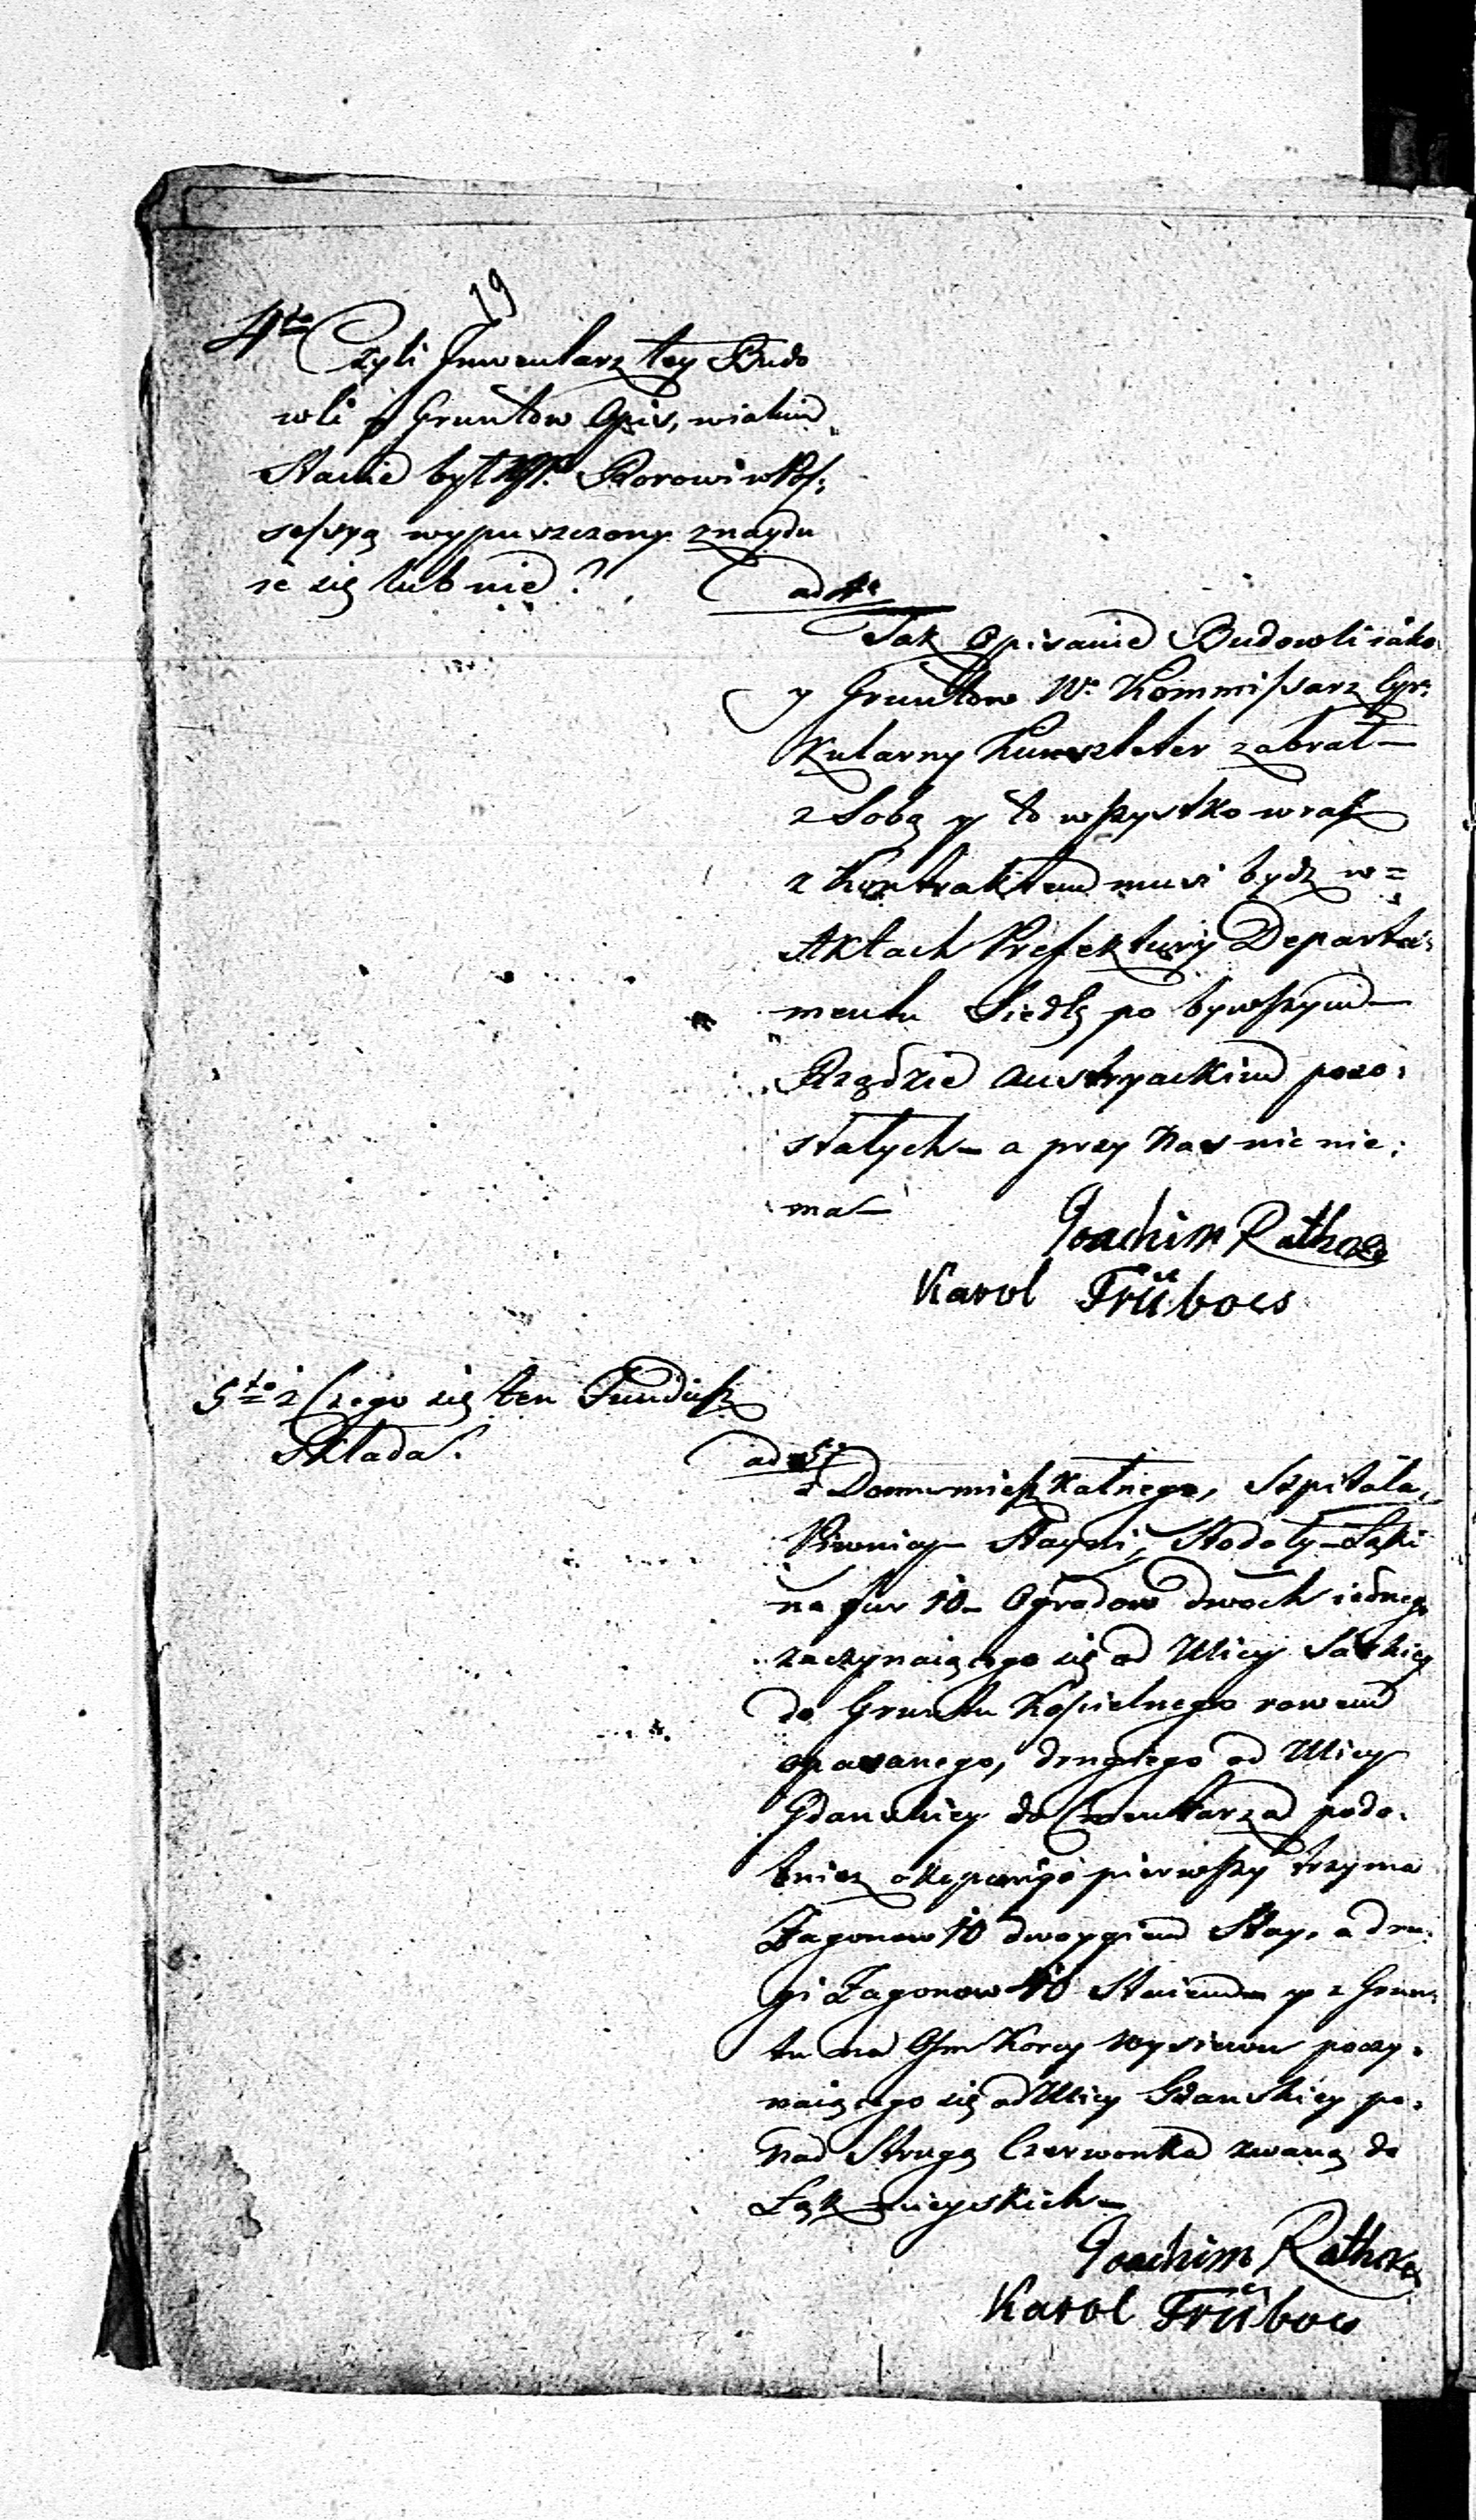 19
4to Czyli Inwentarz tey Budo
wli y Gruntow Opis, w iakim
Stanie był Borowi w Pos:
sessyą wypuszczony znaydu
ie się lub nie?
ad 4to
Tak Opisanie Budowli iako
y Gruntow Wy Kommissarz Cyr:
kularny zabrał –
z Sobą y to wszystko wraz
z Kontraktem musi bydz w =
Aktach Prefektury Departa:
mentu Siedlę po bywszym –
Rządzie Austryackim pozo:
stałych – a przy Nas nic nie:
ma –
Joachim Rathcke
Karol Trübocs
5to z Czego się ten Fundusz
Składa.
ad 5to
z Domu mieszkalnego, Szpitala,
Piwnicy – Stayni, Stodoły – Łąki
na fur 10 – Ogrodow dwoch iednego
zaczynaiącego się od Ulicy Saskiey
do Gruntu Kościelnego rowem
opasanego, drugiego od Ulicy
Gdanskiey do Cmentarza podo:
bniez pierwszy trzyma
Zagonow 10 Stay, a dru:
gi Zagonow 10 y z Grun:
tu na Osm Korcy Wysiewu poczy:
naiącego się od Ulicy Gdanskiey po:
nad Strugą Czerwonka zwaną do
Łąk mieyskich –
Joachim Rathcke
Karol Trübocs